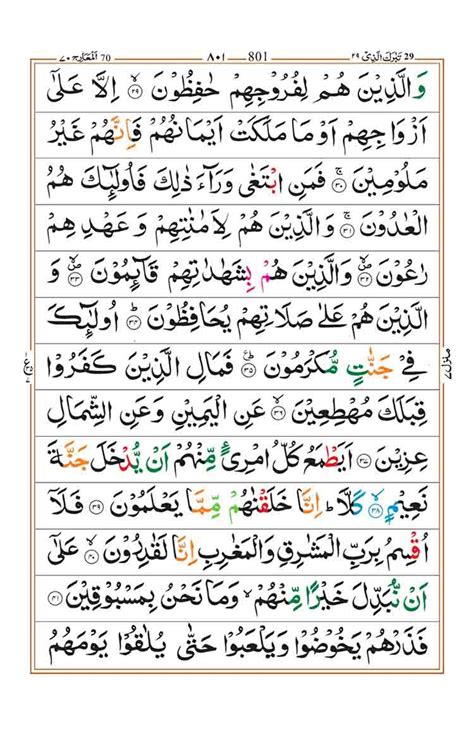 المعارج ٧٠ 70 ٨٠١ 801 تبرك الذي ٢٩ 29
وَالَّذِيْنَ هُمْ لِفُرُوْجِهِمْ حٰفِظُوْنَ ۙ‏ ﴿۲۹﴾ اِلَّا عَلٰٓى
اَزْوَاجِهِمْ اَوْ مَا مَلَكَتْ اَيْمَانُهُمْ فَاِنَّهُمْ غَيْرُ
مَلُوْمِيْنَ​ۚ‏ ﴿۳۰﴾ فَمَنِ ابْتَغٰى وَرَآءَ ذٰلِكَ فَاُولٰٓئِكَ هُمُ
الْعٰدُوْنَ​ۚ‏ ﴿۳۱﴾ وَالَّذِيْنَ هُمْ لِاَمٰنٰتِهِمْ وَعَهْدِهِمْ
رٰعُوْنَ ۙ‏ ﴿۳۲﴾ وَالَّذِيْنَ هُمْ بِشَهٰدٰتِهِمْ قَآئِمُوْنَ ۙ‏ ﴿۳۳﴾ وَ
الَّذِيْنَ هُمْ عَلٰى صَلَاتِهِمْ يُحَافِظُوْنَؕ‏ ﴿۳۴﴾ اُولٰٓئِكَ
فِىْ جَنّٰتٍ مُّكْرَمُوْنَؕ ﴿۳۵﴾ فَمَالِ الَّذِيْنَ كَفَرُوْا
قِبَلَكَ مُهْطِعِيْنَۙ‏ ﴿۳۶﴾ عَنِ الْيَمِيْنِ وَعَنِ الشِّمَالِ
عِزِيْنَ‏ ﴿۳۷﴾ اَيَطْمَعُ كُلُّ امْرِىءٍ مِّنْهُمْ اَنْ يُّدْخَلَ جَنَّةَ
نَعِيْمٍۙ‏ ﴿۳۸﴾ كَلَّا ؕ اِنَّا خَلَقْنٰهُمْ مِّمَّا يَعْلَمُوْنَ‏ ﴿۳۹﴾ فَلَاۤ
اُقْسِمُ بِرَبِّ الْمَشٰرِقِ وَالْمَغٰرِبِ اِنَّا لَقٰدِرُوْنَۙ‏ ﴿۴۰﴾ عَلٰٓى
اَنْ نُّبَدِّلَ خَيْرًا مِّنْهُمْۙ وَمَا نَحْنُ بِمَسْبُوْقِيْنَ‏ ﴿۴۱﴾
فَذَرْهُمْ يَخُوْضُوْا وَيَلْعَبُوْا حَتّٰى يُلٰقُوْا يَوْمَهُمُ
منزل ٧